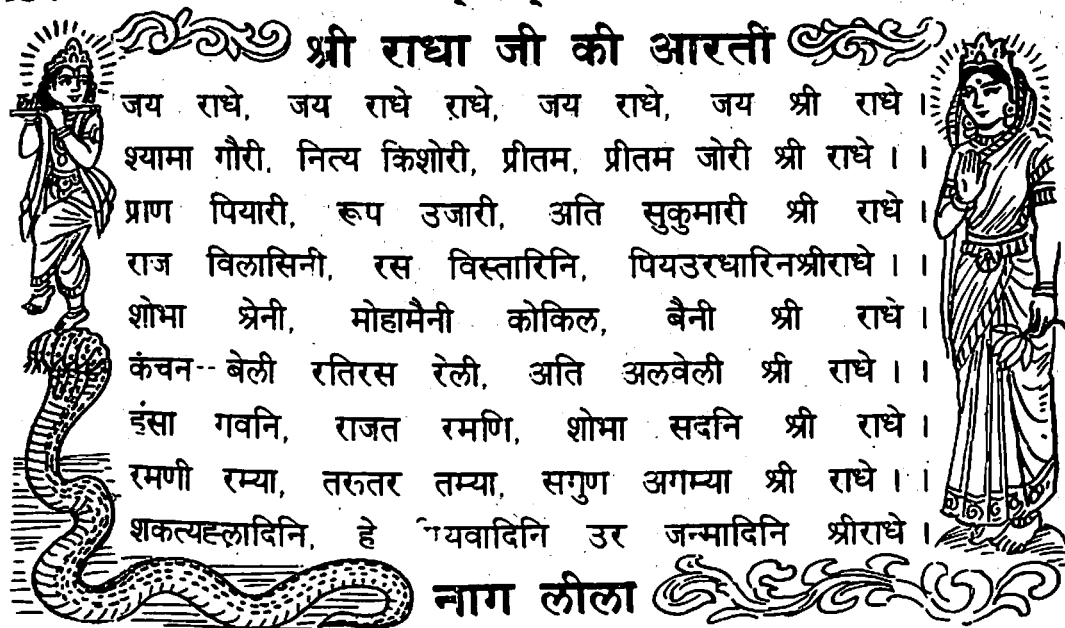 श्री राधा जी की आरती
जय राधे, जय राधे राधे, जय राधे, जय श्री राधे ।
श्यामा गौरी, नित्य किशोरी, प्रीतम, प्रीतम जोरी श्री राधे । ।
प्राण पियारी, रूप उजारी, अति सुकुमारी श्री राधे ।
राज विलासिनी, रस विस्तारिनि, पियउरधारिनश्रीराधे । ।
शोभा श्रेनी, मोहामैनी कोकिल, बैनी श्री राधे ।
कंचन-- बेली रतिरस रेली, अति अलवेली श्री राधे । ।
हंसा गवनि, राजत रमणि, शोभा सदनि श्री राधे ।
रमणी रम्या, तरुतर तम्या, सगुण अगम्या श्री राधे । ।
शकत्यह्लादिनि, हे उर जन्मादिनि श्रीराधे ।
नाग लीला